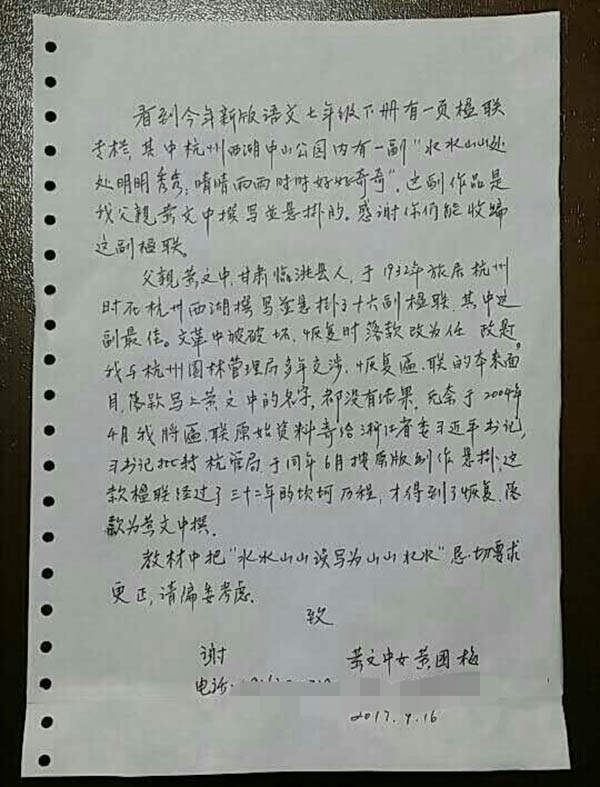 看到今年新版语文七年级下册有一页楹联
专栏，其中杭州西湖中山公园内有一副“水水山山处
处明明秀秀，晴晴雨雨时时好好奇奇”，这副作品是
我父親黄文中撰写並悬掛的。感谢你们能收编
这副楹联。
父親黄文中，甘肃临洮县人，于1932年旅居杭州
时在杭州西湖撰写並悬掛了十六副楹联，其中这
副最佳。文革中被破坏，恢复时落款改为任 政是，
我与杭州园林管理局多年交涉，恢复匾、联的本来面
目，落款写上黄文中的名字，都没有结果，无奈于2004年
4月我将匾、联原始资料寄给浙江省委习近平书记，
习书记批转杭管局，于同年6月按原版制作悬掛，这
款楹联经过了三十二年的坎坷历程，才得到了恢复，落
款为黄文中撰。
教材中把“水水山山误写为山山水水”恳切要求
更正，请编委考虑。
致
谢
黄文中女黄国梅
电话：
2017.4.16